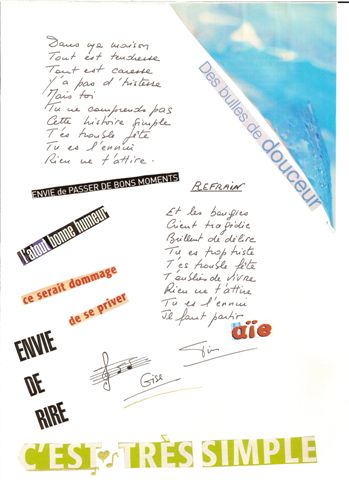 Dans ma maison
Tout est tendresse
Tout est caresse
Y'a pas d'tristesse
Mais toi
Tu ne comprends pas
Cette histoire simple
T'es trouble fête
Tu es l'ennui
Rien ne t'attire.
Des bulles de douceur
ENVIE de PASSER DE BONS MOMENTS
REFRAIN
l'atout bonne humeur
Et les bougies
Crient tragédie
Brillent de délire
Tu es trop triste
T'es trouble fête
T'oublies de vivre
Rien ne t'attire
Tu es l'ennui
Il faut partir
aïe
ce serait dommage
de se priver
ENVIE
DE
RIRE
Gise
C'EST TRÈS SIMPLE